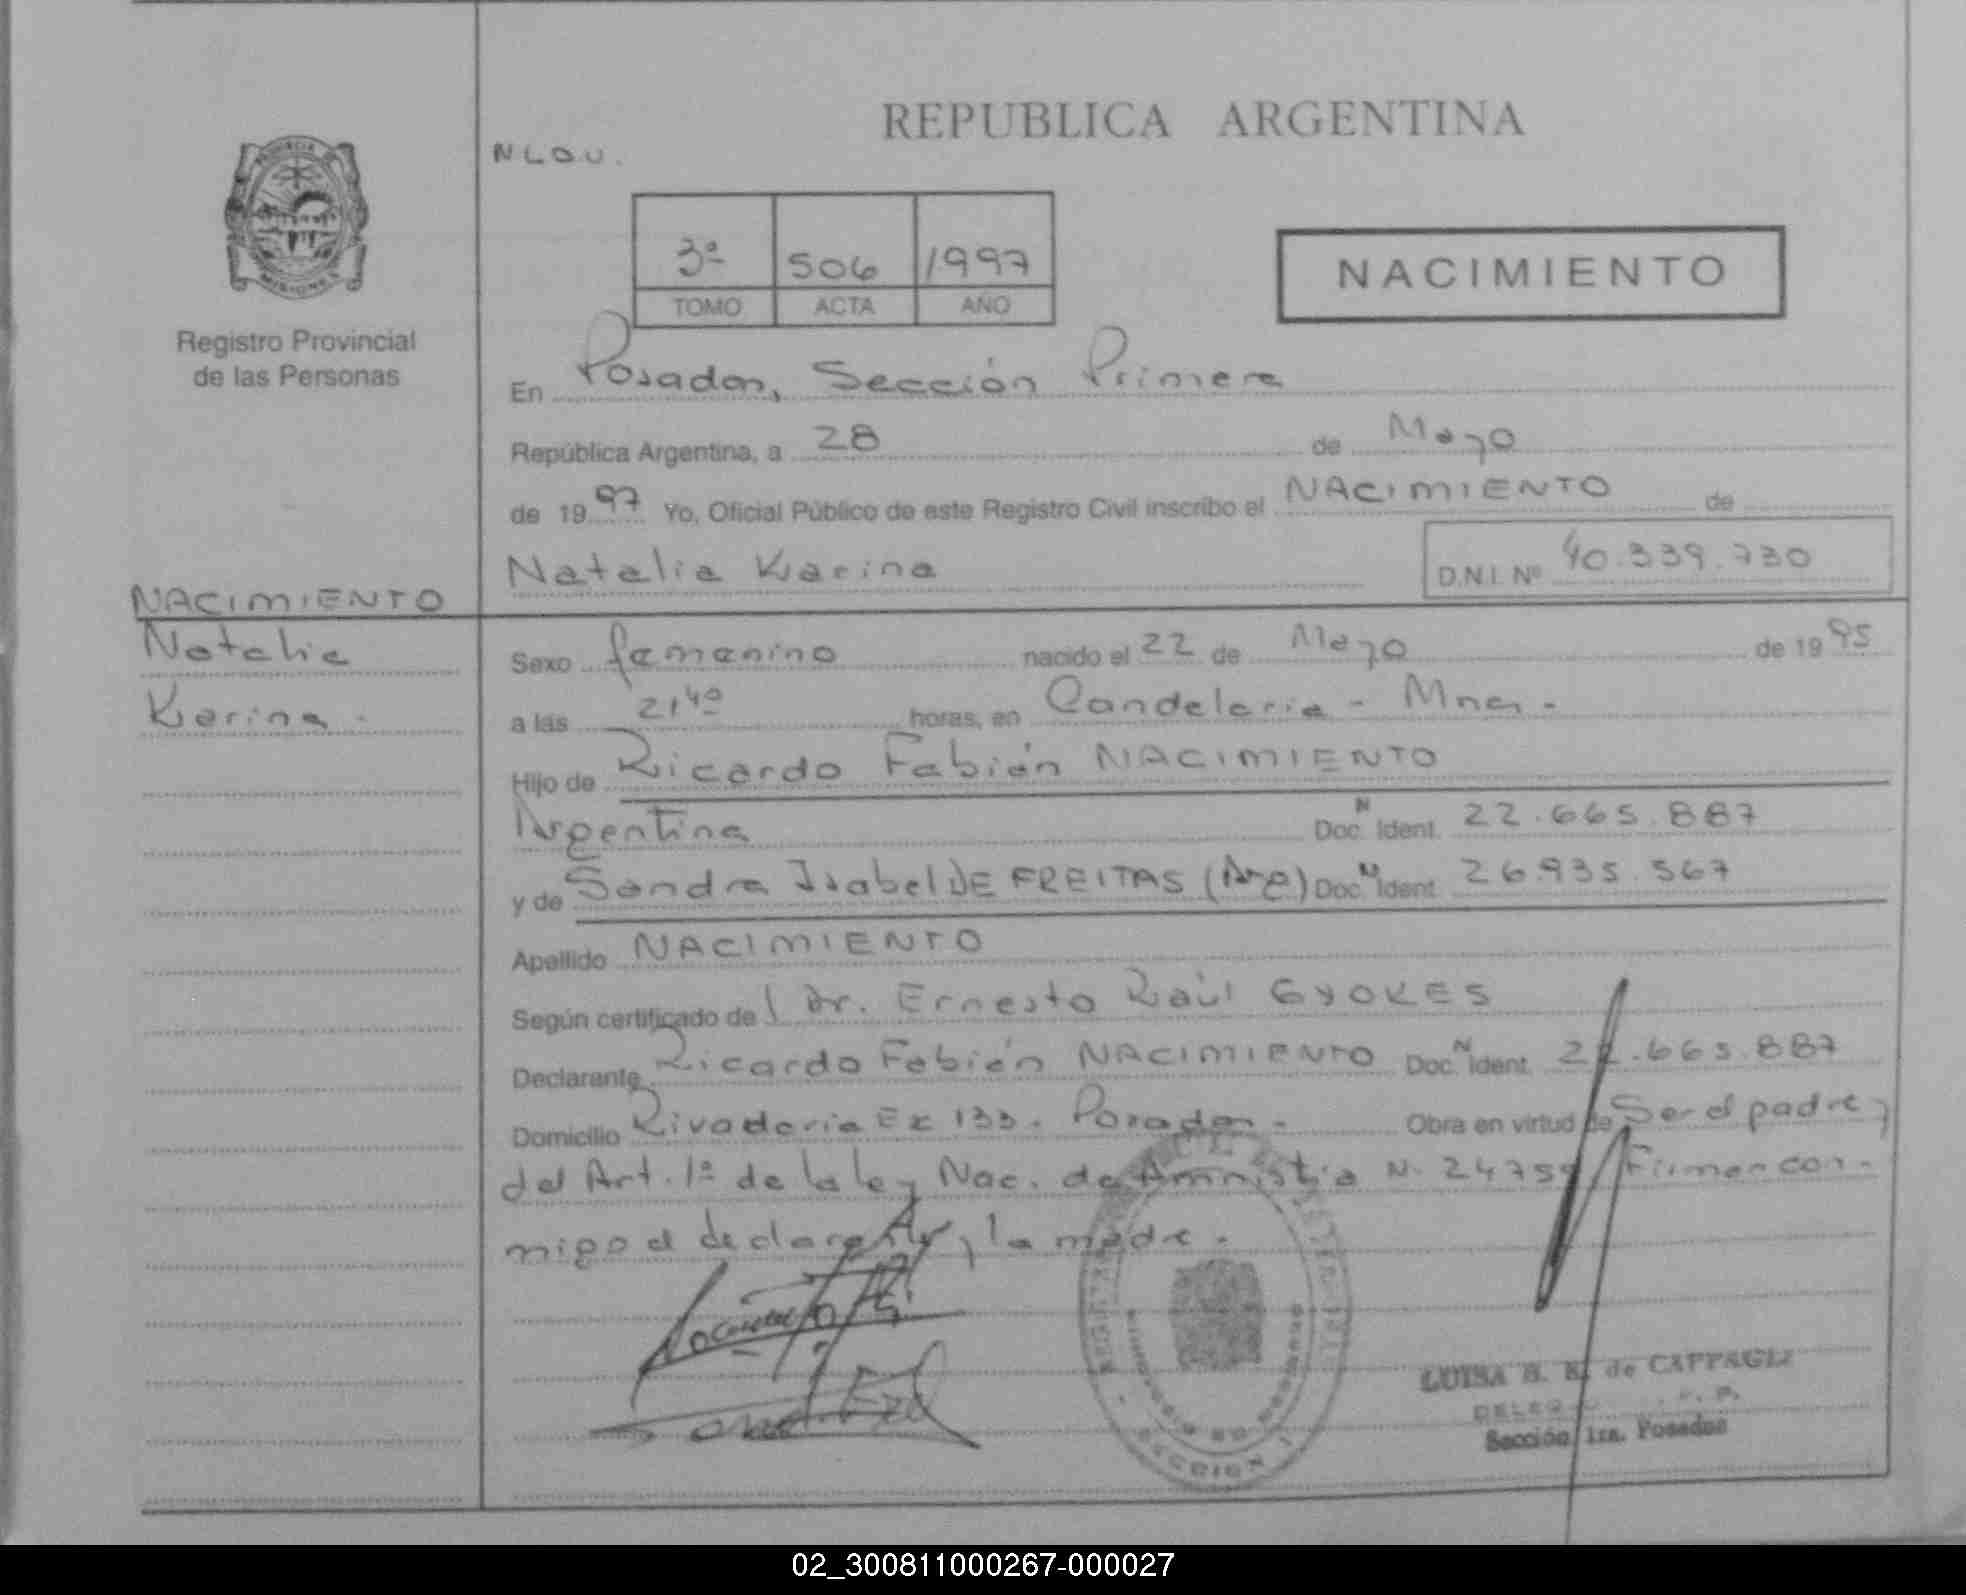 REPUBLICA ARGENTINA
NLOU.
3º 506 1997
TOMO ACTA AÑO
NACIMIENTO
PROVINCIA DE
MISIONES
Registro Provincial
de las Personas
En Posadas, Sección Primera
República Argentina, a 28 de Mayo
de 1997 Yo, Oficial Público de este Registro Civil inscribo el NACIMIENTO de
Natalia Karina
D.N.I. Nº 40.339.730
NACIMIENTO
Natalia
Karina.
Sexo femenino nacido el 22 de Mayo de 1995
a las 21⁴⁰ horas, en Candelaria - Mnes.
Hijo de Ricardo Fabián NACIMIENTO
Argentina Doc. N Ident. 22.665.887
y de Sandra Isabel DE FREITAS (Arg) Doc. N Ident. 26.935.567
Apellido NACIMIENTO
Según certificado del Dr. Ernesto Raúl GYOKES
Declarante Ricardo Fabián NACIMIENTO Doc. N Ident. 22.665.887
Domicilio Rivadavia Ex 133. Posadas. Obra en virtud de Ser el padre y
del Art. 1º de la ley Nac. de Amnistia N. 24755 Firman con-
migo el declarante y la madre.
LUISA de CAPPAGLI
Sección 1ra. Posadas
SECCION 1
02_300811000267-000027